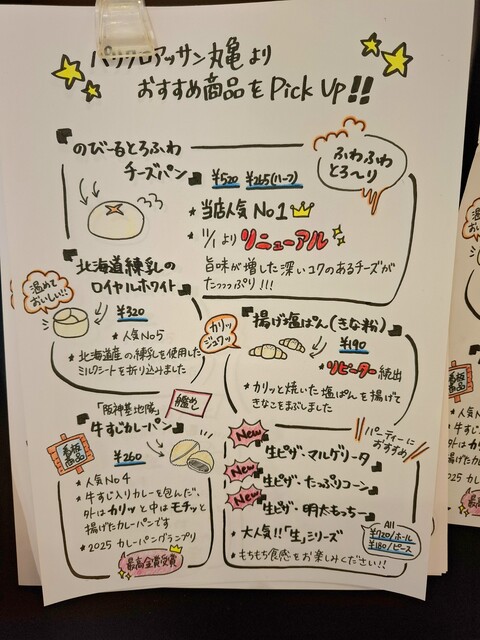 パリクロアッサン丸亀より
おすすめ商品をPick Up!!
のびーるとろふわ
チーズパン
¥520 ¥265(ハーフ)
ふわふわ
とろ〜り
★ 当店人気 No1
★ 11/1より リニューアル
旨味が増した深いコクのあるチーズが
たっっっぷり!!!
温めて
おいしい!!
北海道練乳の
ロイヤルホワイト
¥320
★ 人気No5
★ 北海道産の練乳を使用した
ミルクシートを折り込みました
カリッ
ジュワッ
揚げ塩ぱん(きな粉)
¥190
★ リピーター続出
★ カリッと焼いた塩ぱんを揚げて
きなこをまぶしました
「阪神基地隊」
艦めし
牛すじカレーパン
看板
商品
¥260
★ 人気No4
★ 牛すじ入りカレーを包んだ、
外はカリッと中はモチッと
揚げたカレーパンです
★ 2025 カレーパングランプリ
最高金賞受賞
パーティーに
おすすめ
New 生ピザ・マルゲリータ
New 生ピザ・たっぷりコーン
New 生ピザ・明太もっちー
★ 大人気!!「生」シリーズ
★ もちもち食感をお楽しみください!!
All
¥720/ホール
¥180/ピース